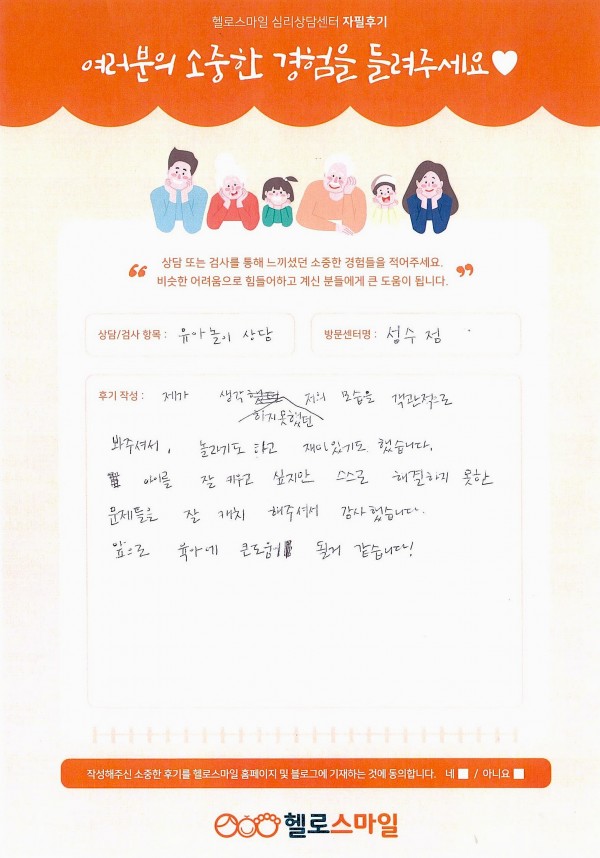 헬로스마일 심리상담센터 자필후기
여러분의 소중한 경험을 들려주세요♥
“ 상담 또는 검사를 통해 느끼셨던 소중한 경험들을 적어주세요.
비슷한 어려움으로 힘들어하고 계신 분들에게 큰 도움이 됩니다. ”
상담/검사 항목 : 유아놀이 상담
방문센터명 : 성수점
후기 작성 : 제가 생각하지못했던 저의 모습을 객관적으로
봐주셔서, 놀라기도 하고 재미있기도 했습니다.
아이를 잘 키우고 싶지만 스스로 해결하지 못한
문제들을 잘 캐치 해주셔서 감사했습니다.
앞으로 육아에 큰도움이 될거 같습니다!
작성해주신 소중한 후기를 헬로스마일 홈페이지 및 블로그에 기재하는 것에 동의합니다. 네 ■ / 아니요 ■
헬로스마일